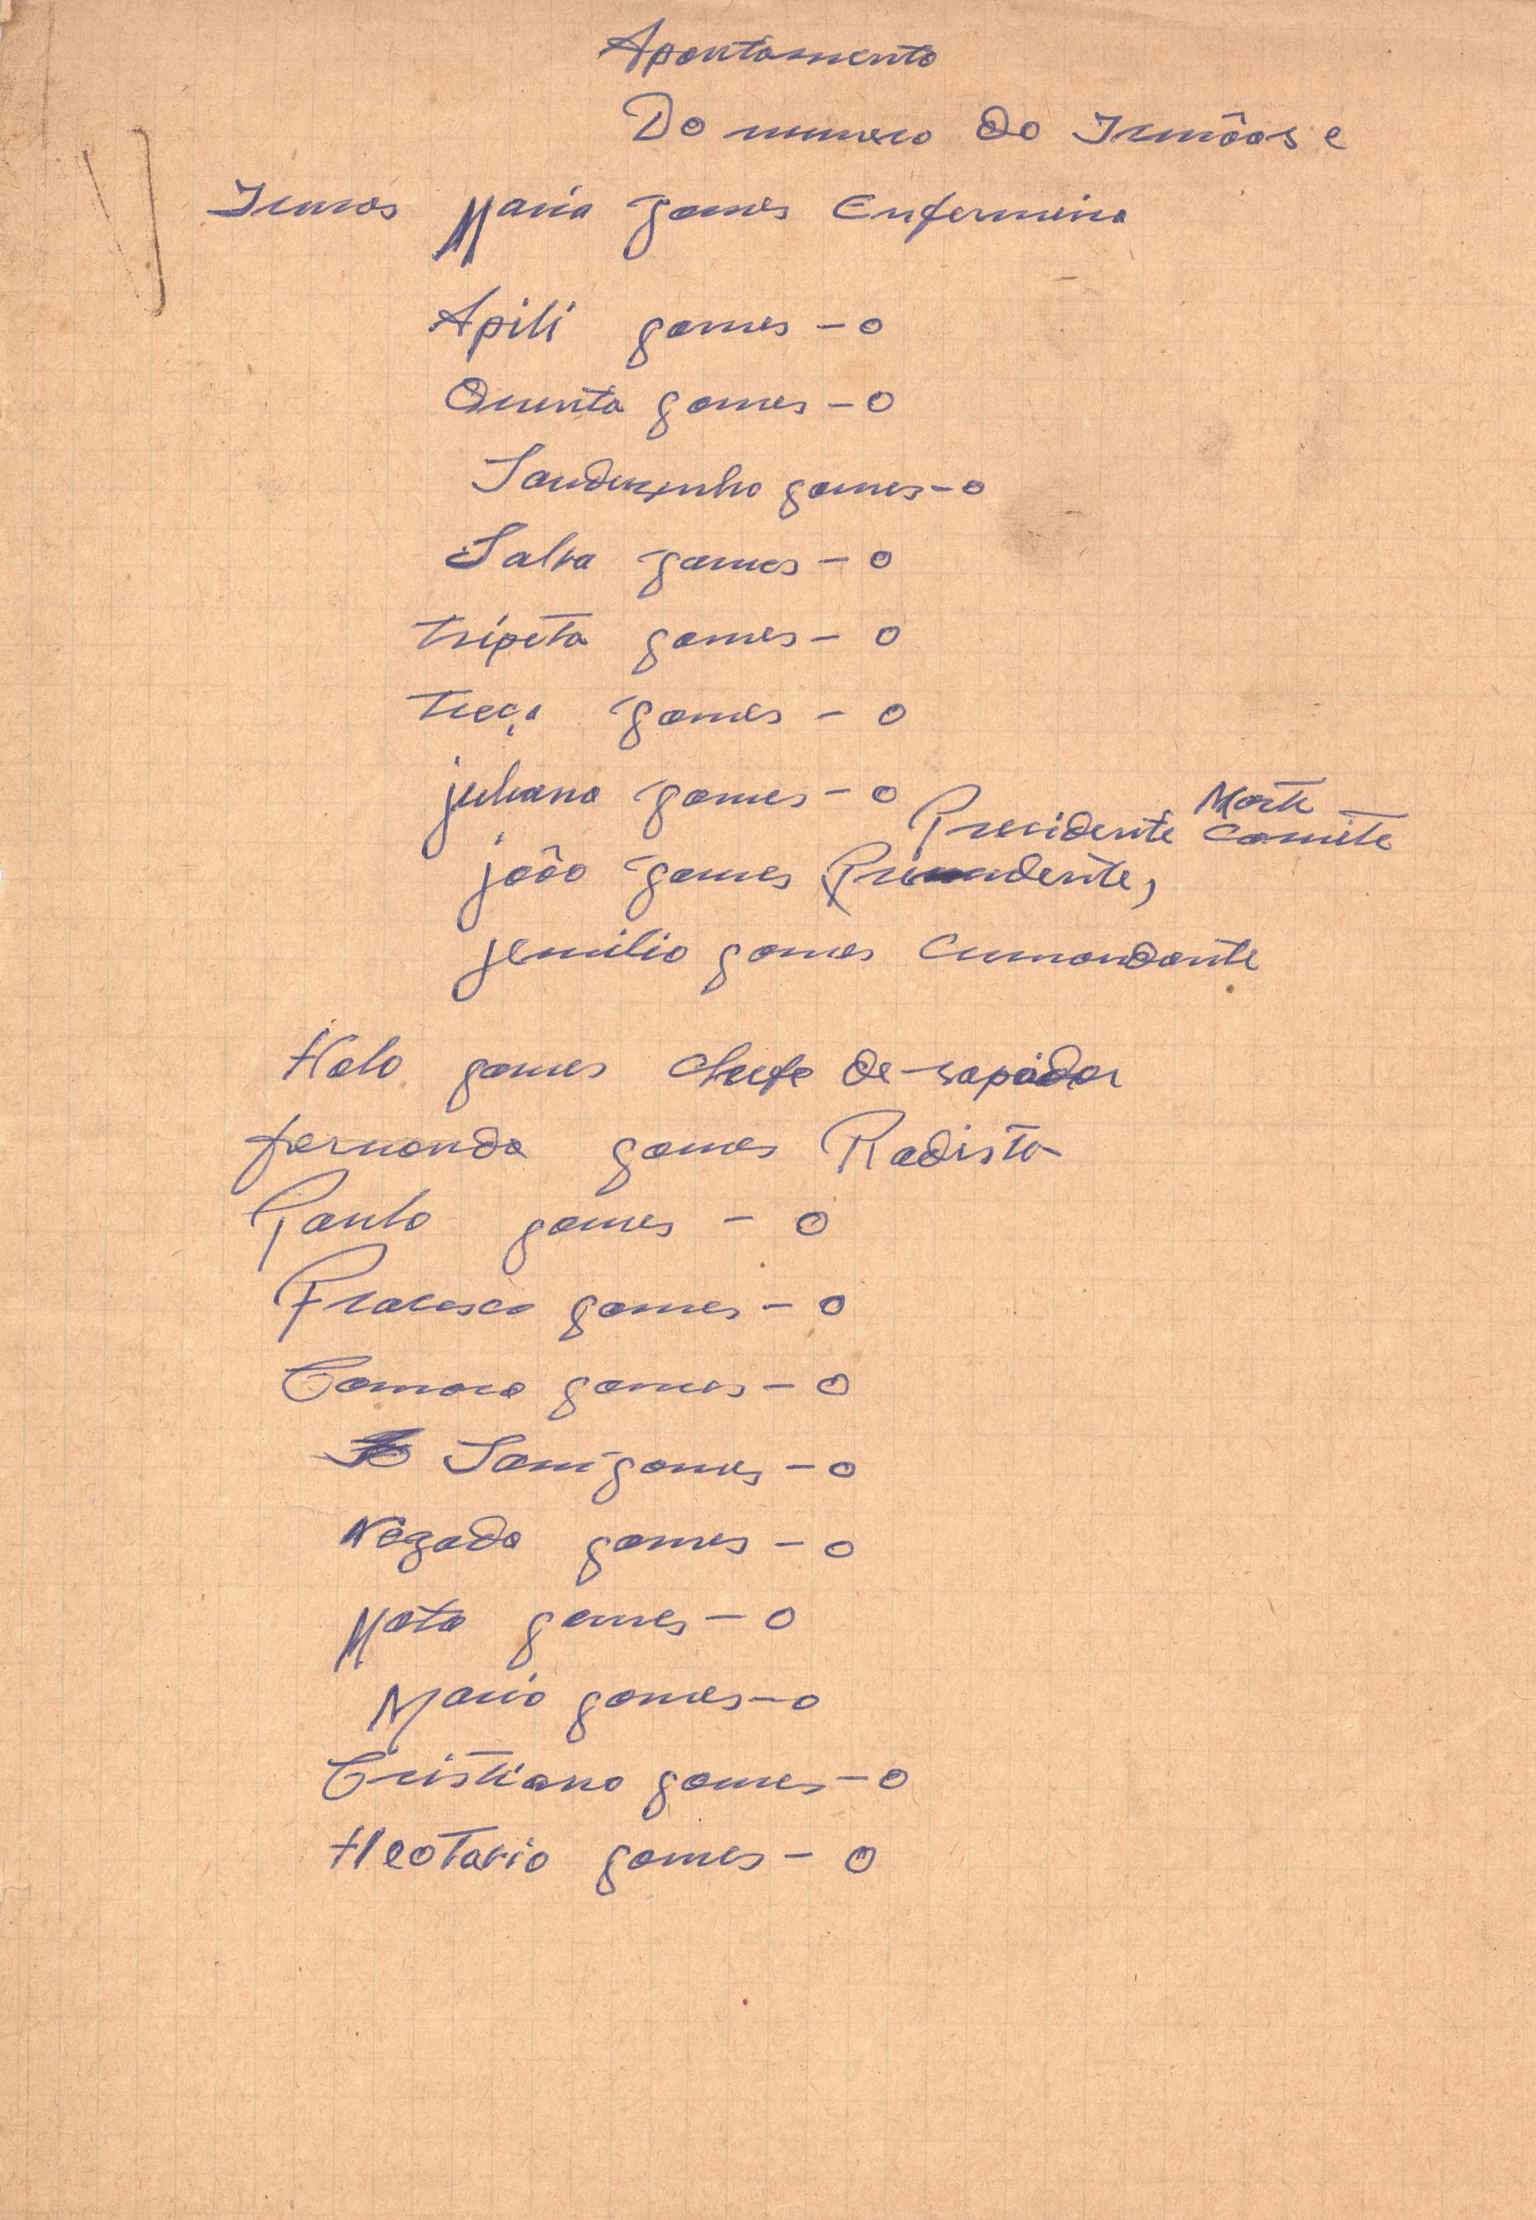 Apontamento
Do numero do Irmôos e
Irmas Maria gomes Enfermeira
Apili gomes - o
Quinta gomes - o
gomes - o
Salva gomes - o
tripeta gomes - o
treça gomes - o
juliana gomes - o
Morte
Precidente Comite
joôo gomes
jemilio gomes Cumandante
Holo gomes Chefe de sapador
fernando gomes Radista
Paulo gomes - o
Fracisco gomes - o
Camara gomes - o
Sami gomes - o
Negado gomes - o
Mata gomes - o
Mario gomes - o
Cristiano gomes - o
Heotavio gomes - o